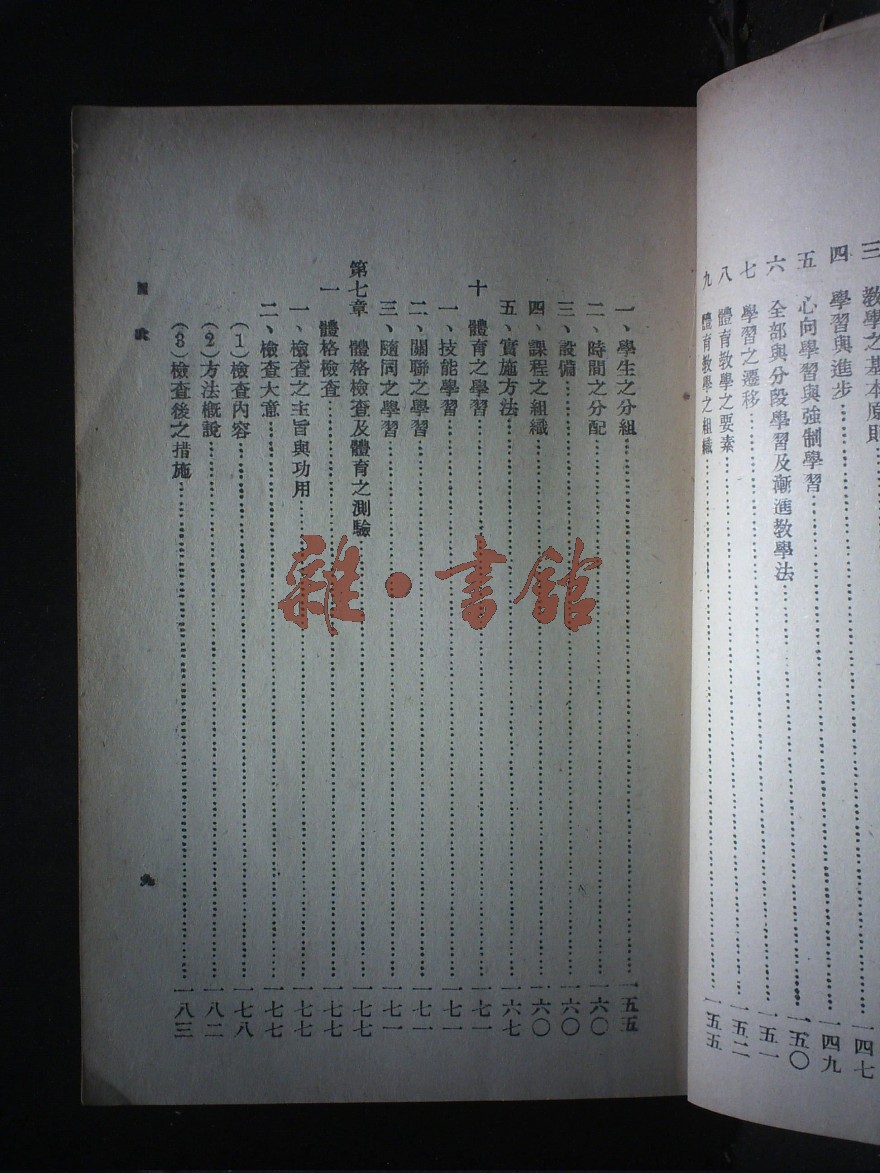 三 教學之基本原則 一四七
四 學習與進步 一四九
五 心向學習與強制學習 一五〇
六 全部與分段學習及漸進教學法 一五一
七 學習之遷移 一五二
八 體育教學之要素
九 體育教學之組織 一五五
一、學生之分組 一五五
二、時間之分配 一六〇
三、設備 一六〇
四、課程之組織 一六〇
五、實施方法 一六七
十 體育之學習 一七一
一、技能學習 一七一
二、關聯之學習 一七一
三、隨同之學習 一七一
第七章 體格檢查及體育之測驗 一七七
一 體格檢查 一七七
一、檢查之主旨與功用 一七七
二、檢查大意 一七七
(1)檢查內容 一七八
(2)方法概說 一八二
(3)檢查後之措施 一八三
目 次
九
雜·書館